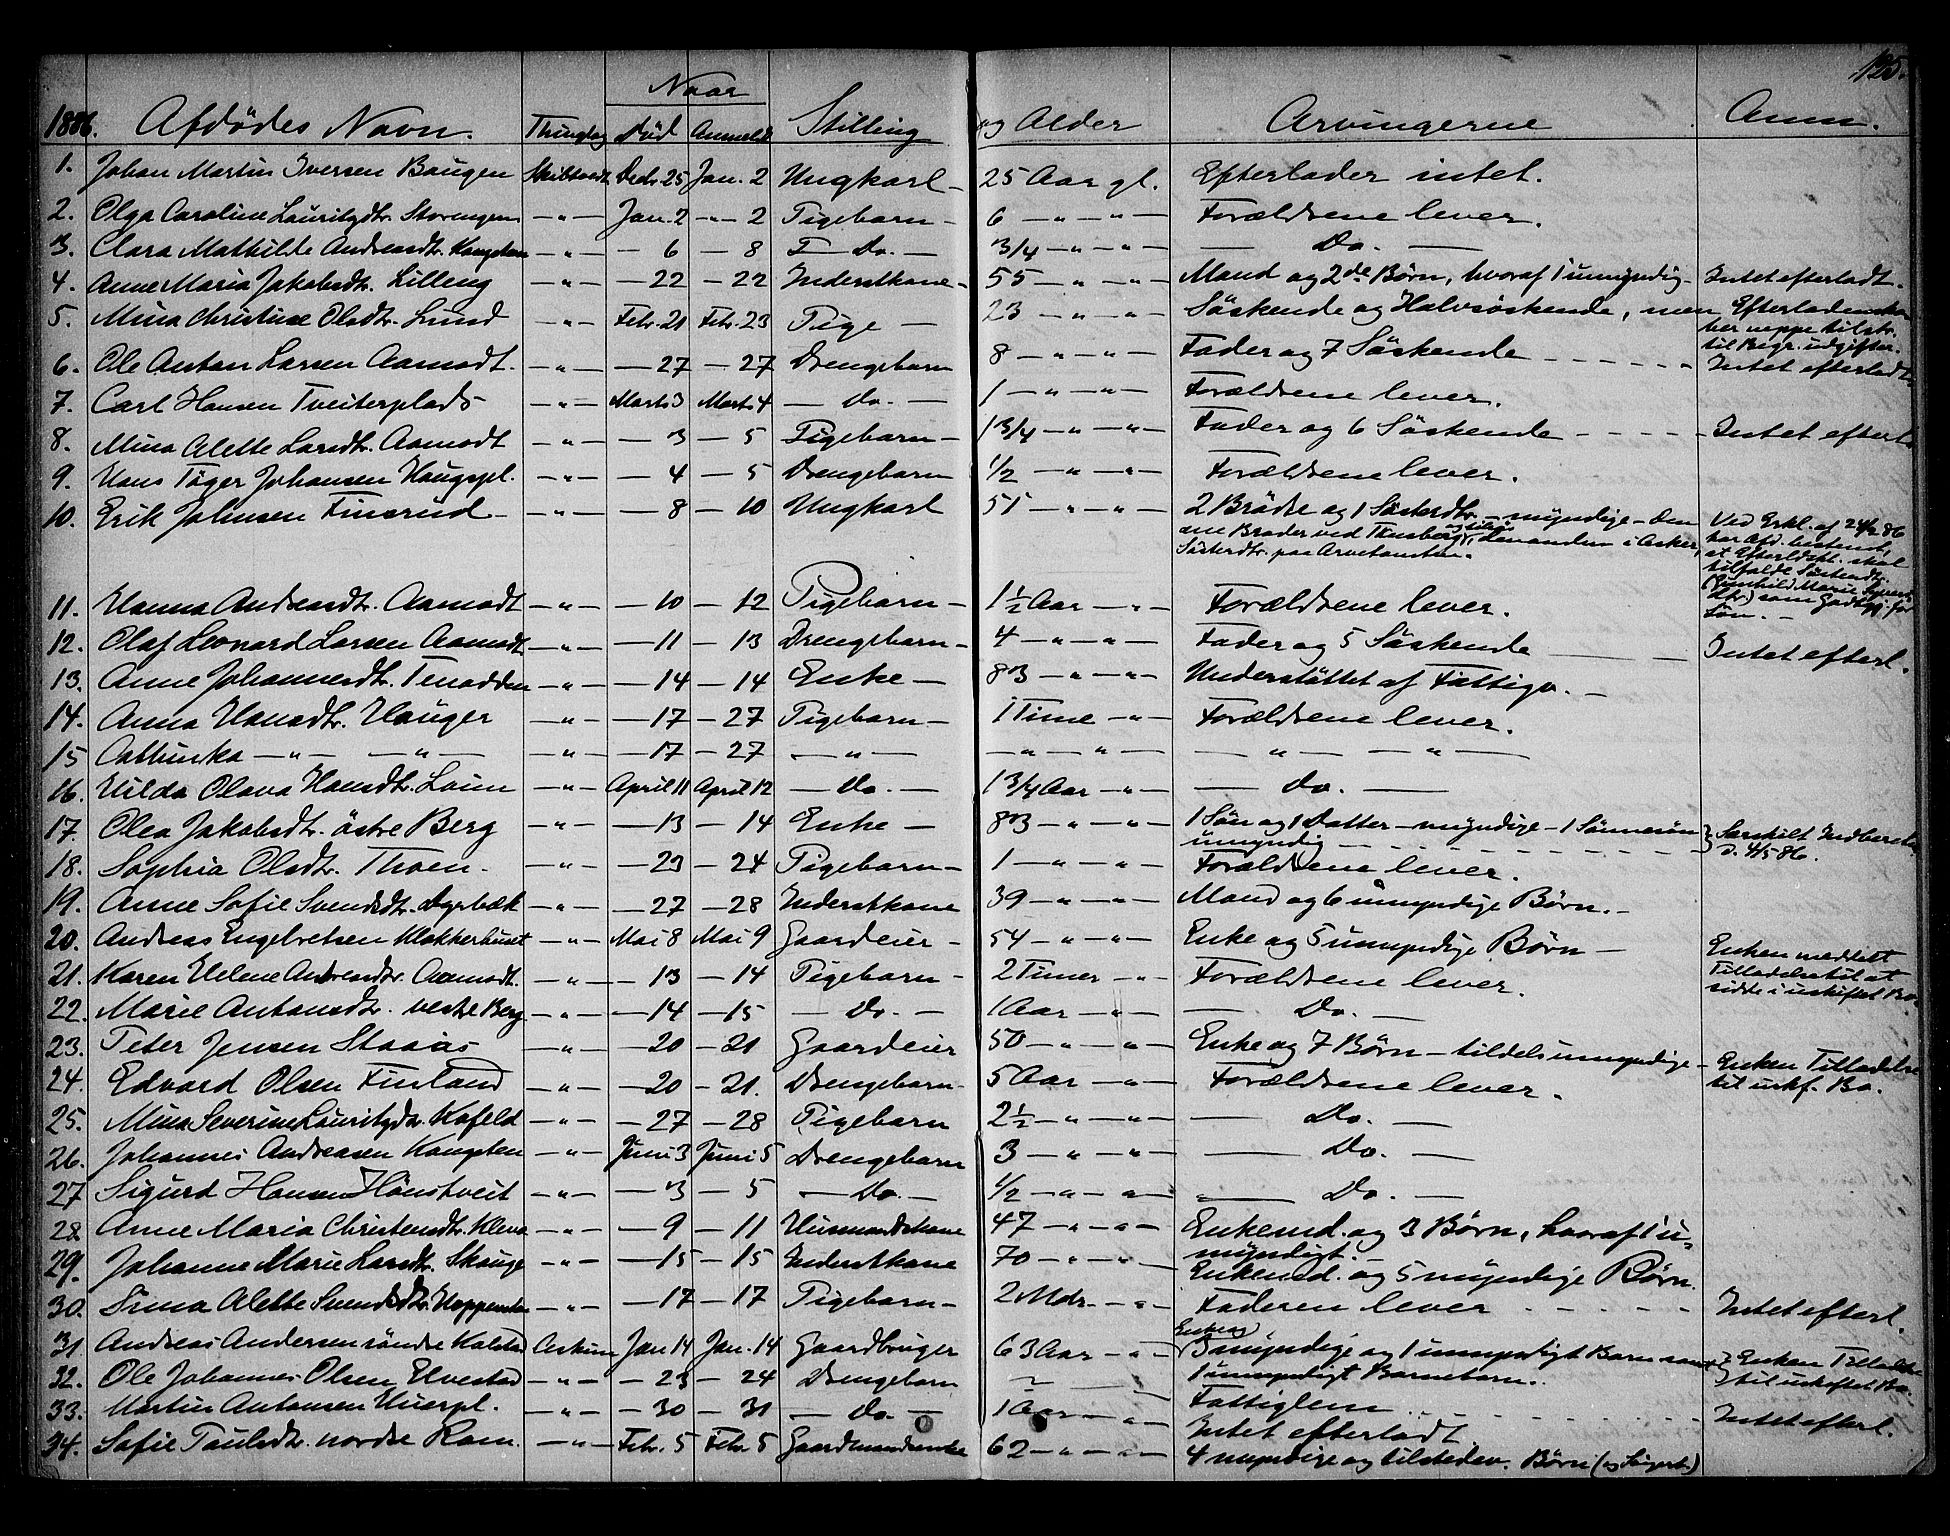 125.
Naar
1886. Afdödes Navn. Thinglag Död Anmeldt Stilling og Alder Arvingerne Anm.
1. Johan Martin Iversen Baugen Skibtvedt Decb. 25 Jan. 2 Ungkarl – 25 Aar gl. Efterlader intet.
2. Olga Caroline Lauritzdtr. Storengen — " — Jan. 2 — " — 2 Pigebarn – 6 — " — " — Forældrene lever.
3. Clara Mathilde Andreasdtr. — " — — 6 — 8 — Do. — 3/4 — " — " — — Do. —
4. Anne Maria Jakobsdtr. Lilleng — " — — 22 — 22 Inderstkone – 55 — " — " — Mand og 2de Börn, hvoraf 1 umyndig – Intet efterladt.
5. Mina Christine Olsdtr. Lund — " — Febr. 21 Febr. 23 Pige — 23 — " — " — Söskende og Halvsöskende, men Efterladenska-
ber neppe tilstr.
til Begr. udgifter.
6. Ole Anton Larsen Aamodt. — " — — 27 — 27 Drengebarn 8 — " — " — Fader og 7 Söskende - - - - - Intet efterladt.
7. Carl Hansen Tveiterplads — " — Marts 3 Marts 4 — do. — 1 — " — " — Forældrene lever.
8. Mina Alette Larsdtr. Aamodt — " — — 3 — 5 Pigebarn – 1 3/4 — " — " — Fader og 6 Söskende - - - - - Intet efterl.
9. Hans Töger Johansen Haugspl. — " — — 4 — 5 Drengebarn 1/2 — " — " — Forældrene lever.
10. Erik Johnsen Finsrud – — " — — 8 — 10 Ungkarl 51 — " — " — 2 Brödre og 1 Sösterdtr. – myndige – Den
ene Broder ved Tunsberg, den anden i Asker,
Sösterdtr. paa Arvetomten.
Ved Erkl. af 24/2 86
har Afd. bestemt,
at Efterladsk. skal
tilfalde Sösterdtr.
(Gunhild Marie
dtr.) som Godtgj. for
Lön. –
11. Hanna Andreasdtr. Aamodt — " — — 10 — 12 Pigebarn – 1 1/2 Aar — " — Forældrene lever.
12. Olaf Leonard Larsen Aamodt — " — — 11 — 13 Drengebarn – 4 — " — " — Fader og 5 Söskende — — Intet efterl.
13. Anne Johannesdtr. Tenodden — " — — 14 — 14 Enke — 83 — " — " — Understöttet af Fattigv. –
14. Anna Hansdtr. Hauger — " — — 17 — 27 Pigebarn – 1 Time — " — Forældrene lever.
15 Cathinka — " — — " — — " — — 17 — 27 — " — — " — " — — " — — " —
16. Hilda Olava Hansdtr. Loim — " — April 11 April 12 — Do. — 1 3/4 Aar — " — — do. —
17. Olea Jakobsdtr. östre Berg — " — — 13 — 14 Enke — 83 — " — " — 1 Sön og 1 Datter – myndige – 1 Sönnesön
umyndig - - - - - - -
Særskilt Indberetn.
D. 4/5 86.
18. Sophia Olsdtr. Thoen. — " — — 23 — 24 Pigebarn – 1 — " — " — Forældrene lever.
19. Anne Sofie Svendsdtr. Dyrbæk — " — — 27 — 28 Inderstkone 39 — " — " — Mand og 6 umyndige Börn. –
20. Andreas Engebretsen Klokkerhuset — " — Mai 8 Mai 9 Gaardeier – 54 — " — " — Enke og 5 umyndige Börn — Enken meddelt
Tilladelse til at
sidde i uskiftet Bo.
21. Karen Helene Andreasdtr. Aamodt. — " — — 13 — 14 Pigebarn – 2 Timer — " — Forældrene lever.
22. Marie Antonsdtr. vestre Berg — " — — 14 — 15 — Do. — 1 Aar — " — — Do. —
23. Peter Jensen Staais — " — — 20 — 21 Gaardeier 50 — " — " — Enke og 7 Börn – tildels umyndige – Enken Tilladelse
til uskf. Bo.
24. Edvard Olsen Finland — " — — 20 — 21. Drengebarn – 5 Aar — " — Forældrene lever.
25. Mina Severine Lauritzdtr. Kofeld — " — — 27 — 28 Pigebarn 2 1/2 — " — " — — Do. —
26. Johannes Andreasen Kangsten — " — Juni 3 Juni 5 Drengebarn 3 — " — " — — Do. —
27 Sigurd Hansen Hönstveit — " — — 3 — 5 — Do. — 1/2 — " — " — — Do. —
28 Anne Maria Christensdtr. Kleva — " — — 9 — 11 Husmandskone 47 — " — " — Enkemd. og 3 Börn, hvoraf 1 u-
myndigt.
29. Johanne Marie Larsdtr. Skauge — " — — 15 — 15 Inderstkone 70 — " — " — Enkemd. og 5 myndige Börn.
30. Alette Svendsdtr. — " — — 17 — 17 Pigebarn – 2 Mdr. — " — Faderen lever - - - - - Intet efterl.
31 Andreas Andersen söndre Kolstad Askim Jan 14 Jan. 14 Gaardbruger 63 Aar — " — Enke og
5 myndige og 1 umyndigt Barn samt
1 umyndigt Barnebarn.
Enken Tilladelse
til uskiftet Bo.
32. Ole Johannes Olsen Elvestad — " — — 23 — 24 Drengebarn
33. Martin Antonsen — " — — 30 — 31 — do. — 1 Aar — " — Fattiglem - - - - - Intet efterl.
Intet efterladt
34. Sofie Paulsdtr. nordre Rom. — " — Febr. 5 Febr. 5 Gaardmandsenke 62 — " — " — 4 myndige og tilstedev. Börn